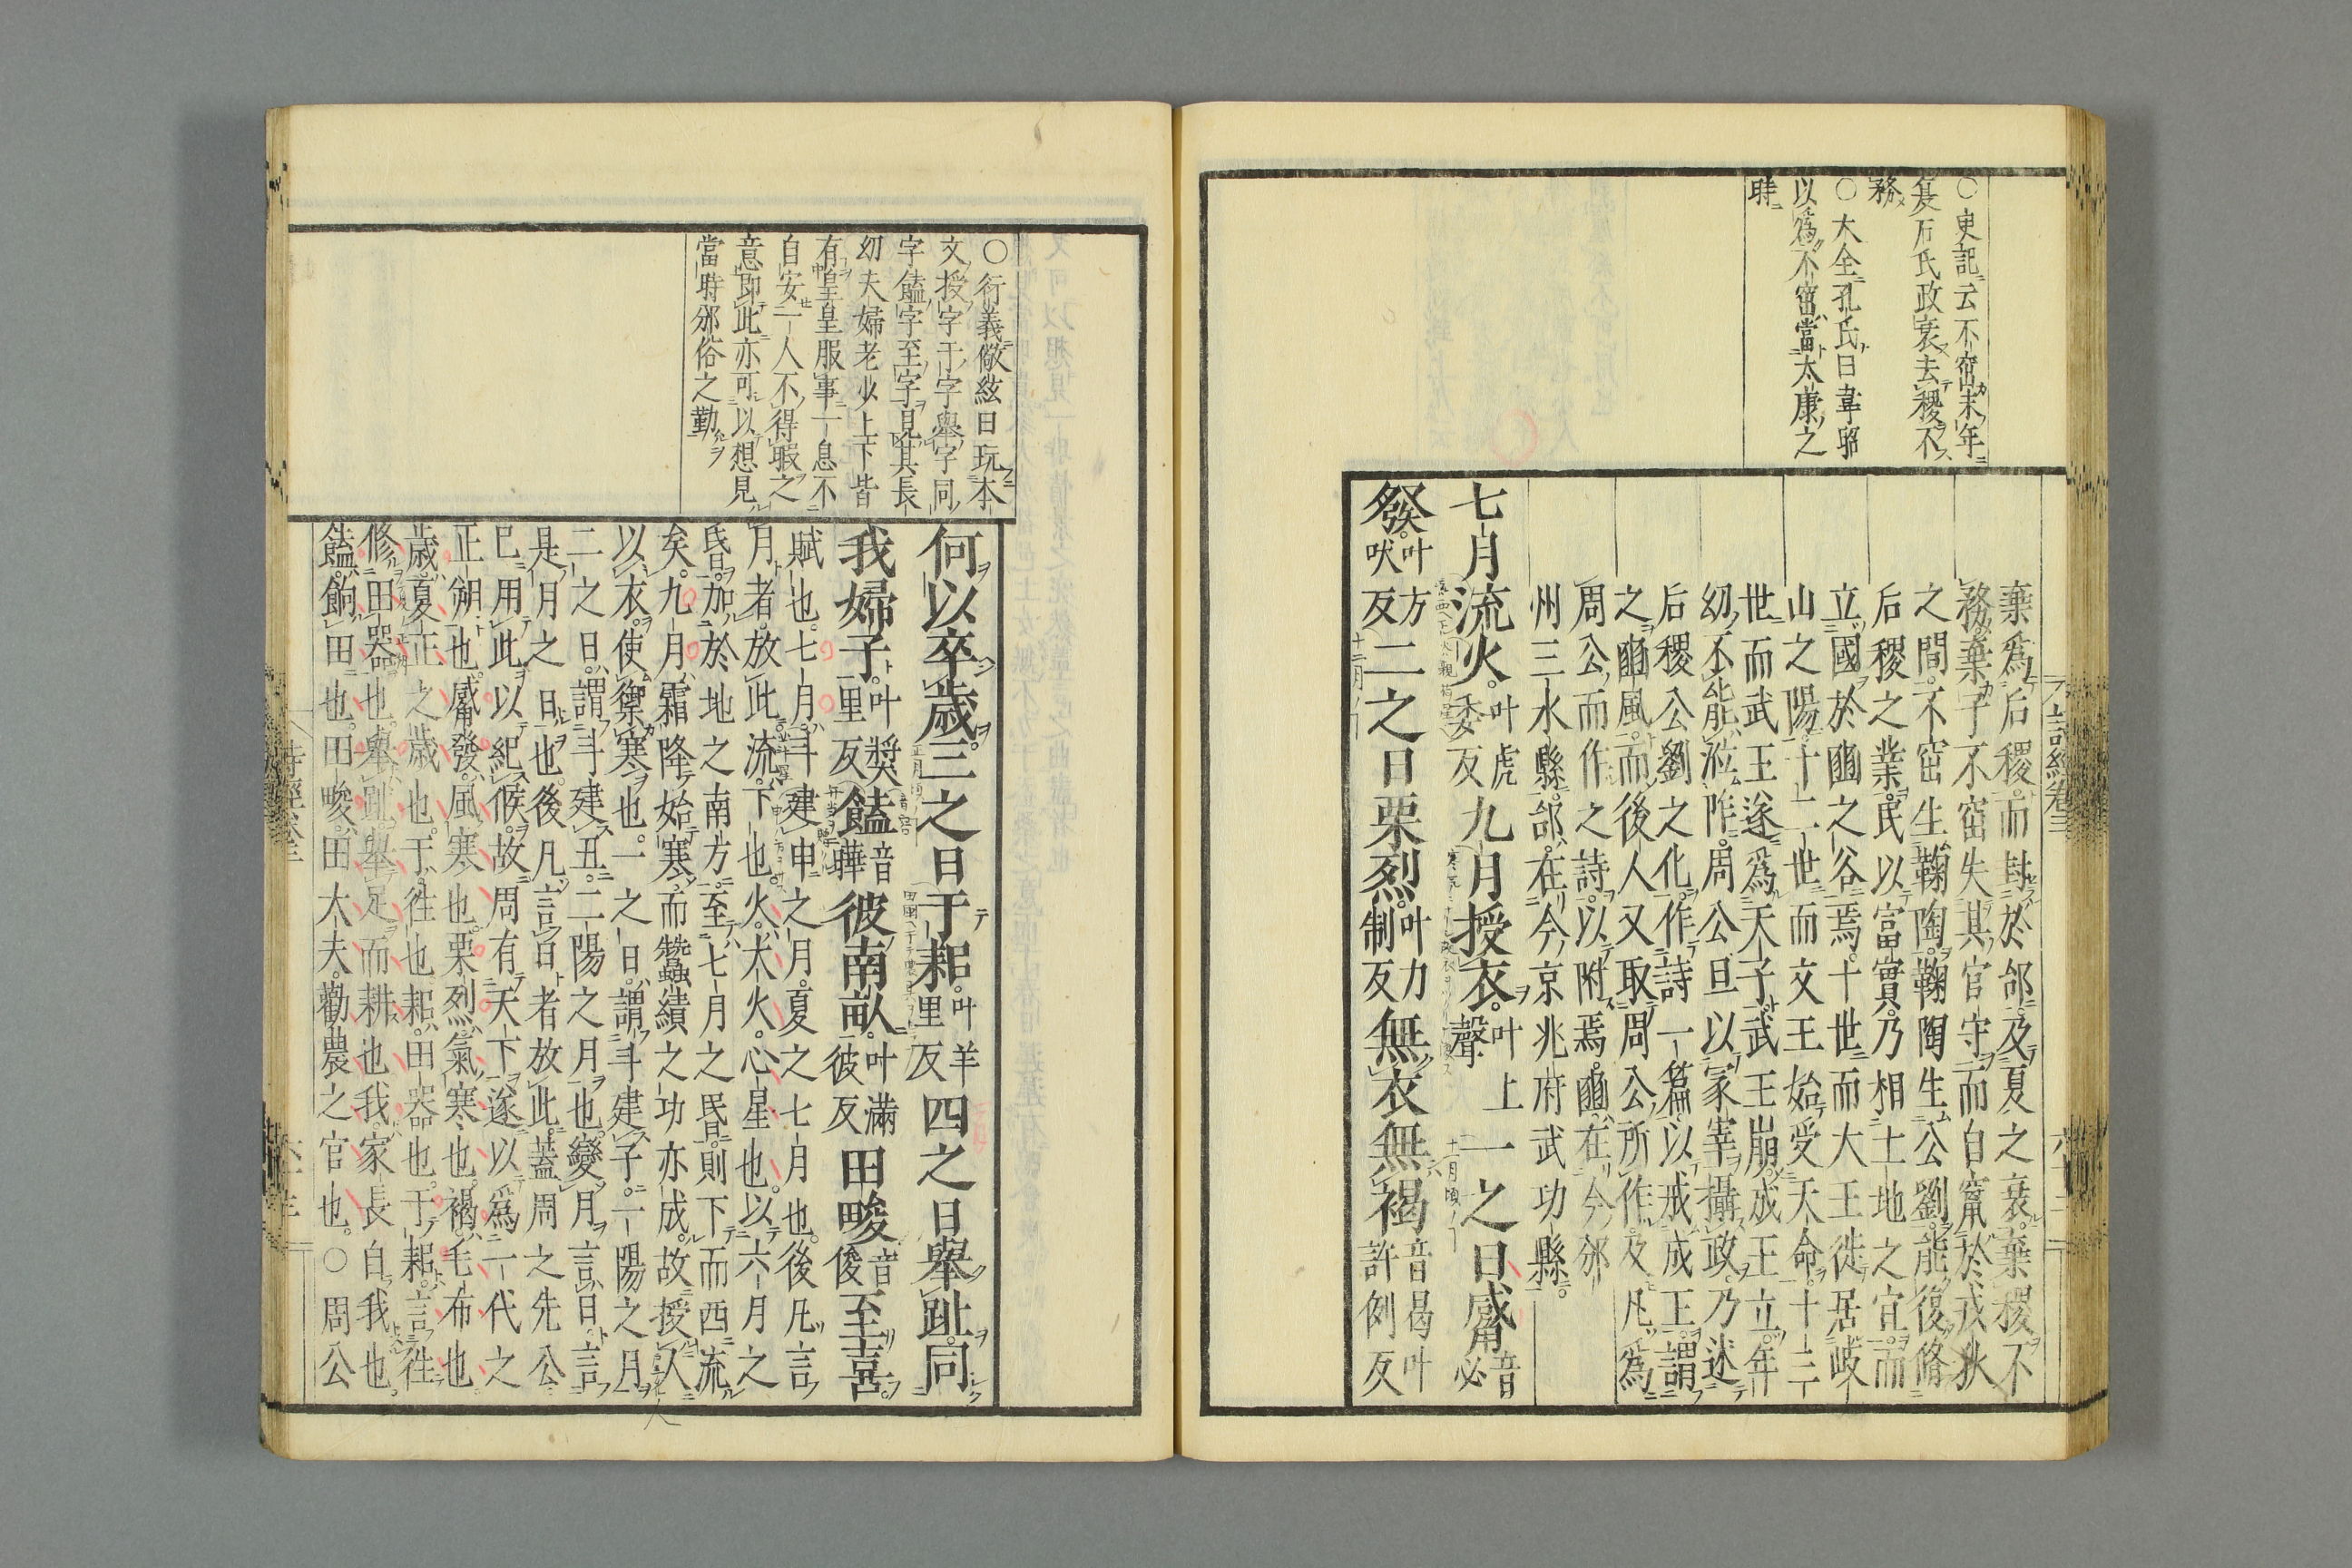 ○史記云不窋末年
夏后氏政衰去稷不
務
○大全孔氏曰韋昭
以爲不窋當太康之
時
棄爲后稷而封於邰及夏之衰棄稷不
務棄子不窋失其官守而自竄於戎狄
之間不窋生鞠陶鞠陶生公劉能復脩
后稷之業民以富實乃相土地之宜而
立國於豳之谷焉十世而大王徙居岐
山之陽十二世而文王始受天命十三
世而武王遂爲天子武王崩成王立年
幼不能涖阼周公旦以冢宰攝政乃述
后稷公劉之化作詩一篇以戒成王謂
之豳風而後人又取周公所作及凡爲
周公而作之詩以附焉豳在今邠
州三水縣邰在今京兆府武功縣
七月流火叶虎委反九月授衣叶上聲一之日觱音必
發叶方吠反二之日栗烈叶力制反無衣無褐音曷叶許例反
○衍義儆弦曰玩本
文授字于字舉字同
字饁字至字見其長
幼夫婦老少上下皆
有皇皇服事一息不
自安一人不得暇之
意即此亦可以想見
當時邠俗之勤
何以卒歲三之日于耜叶羊里反四之日舉趾同
我婦子叶奬里反饁音曄彼南畝叶滿彼反田畯音俊至喜
賦也七月斗建申之月夏之七月也後凡言
月者放此流下也火大火心星也以六月之
昏加於地之南方至七月之昏則下而西流
矣九月霜降始寒而蠶績之功亦成故授人
以衣使禦寒也一之日謂斗建子一陽之月
二之日謂斗建丑二陽之月也變月言日言
是月之日也後凡言日者放此蓋周之先公
已用此以紀候故周有天下遂以爲一代之
正朔也觱發風寒也栗烈氣寒也褐毛布也
歲夏正之歲也于往也耜田器也于耜言往
修田器也舉趾舉足而耕也我家長自我也
饁餉田也田畯田大夫勸農之官也○周公
詩經卷三